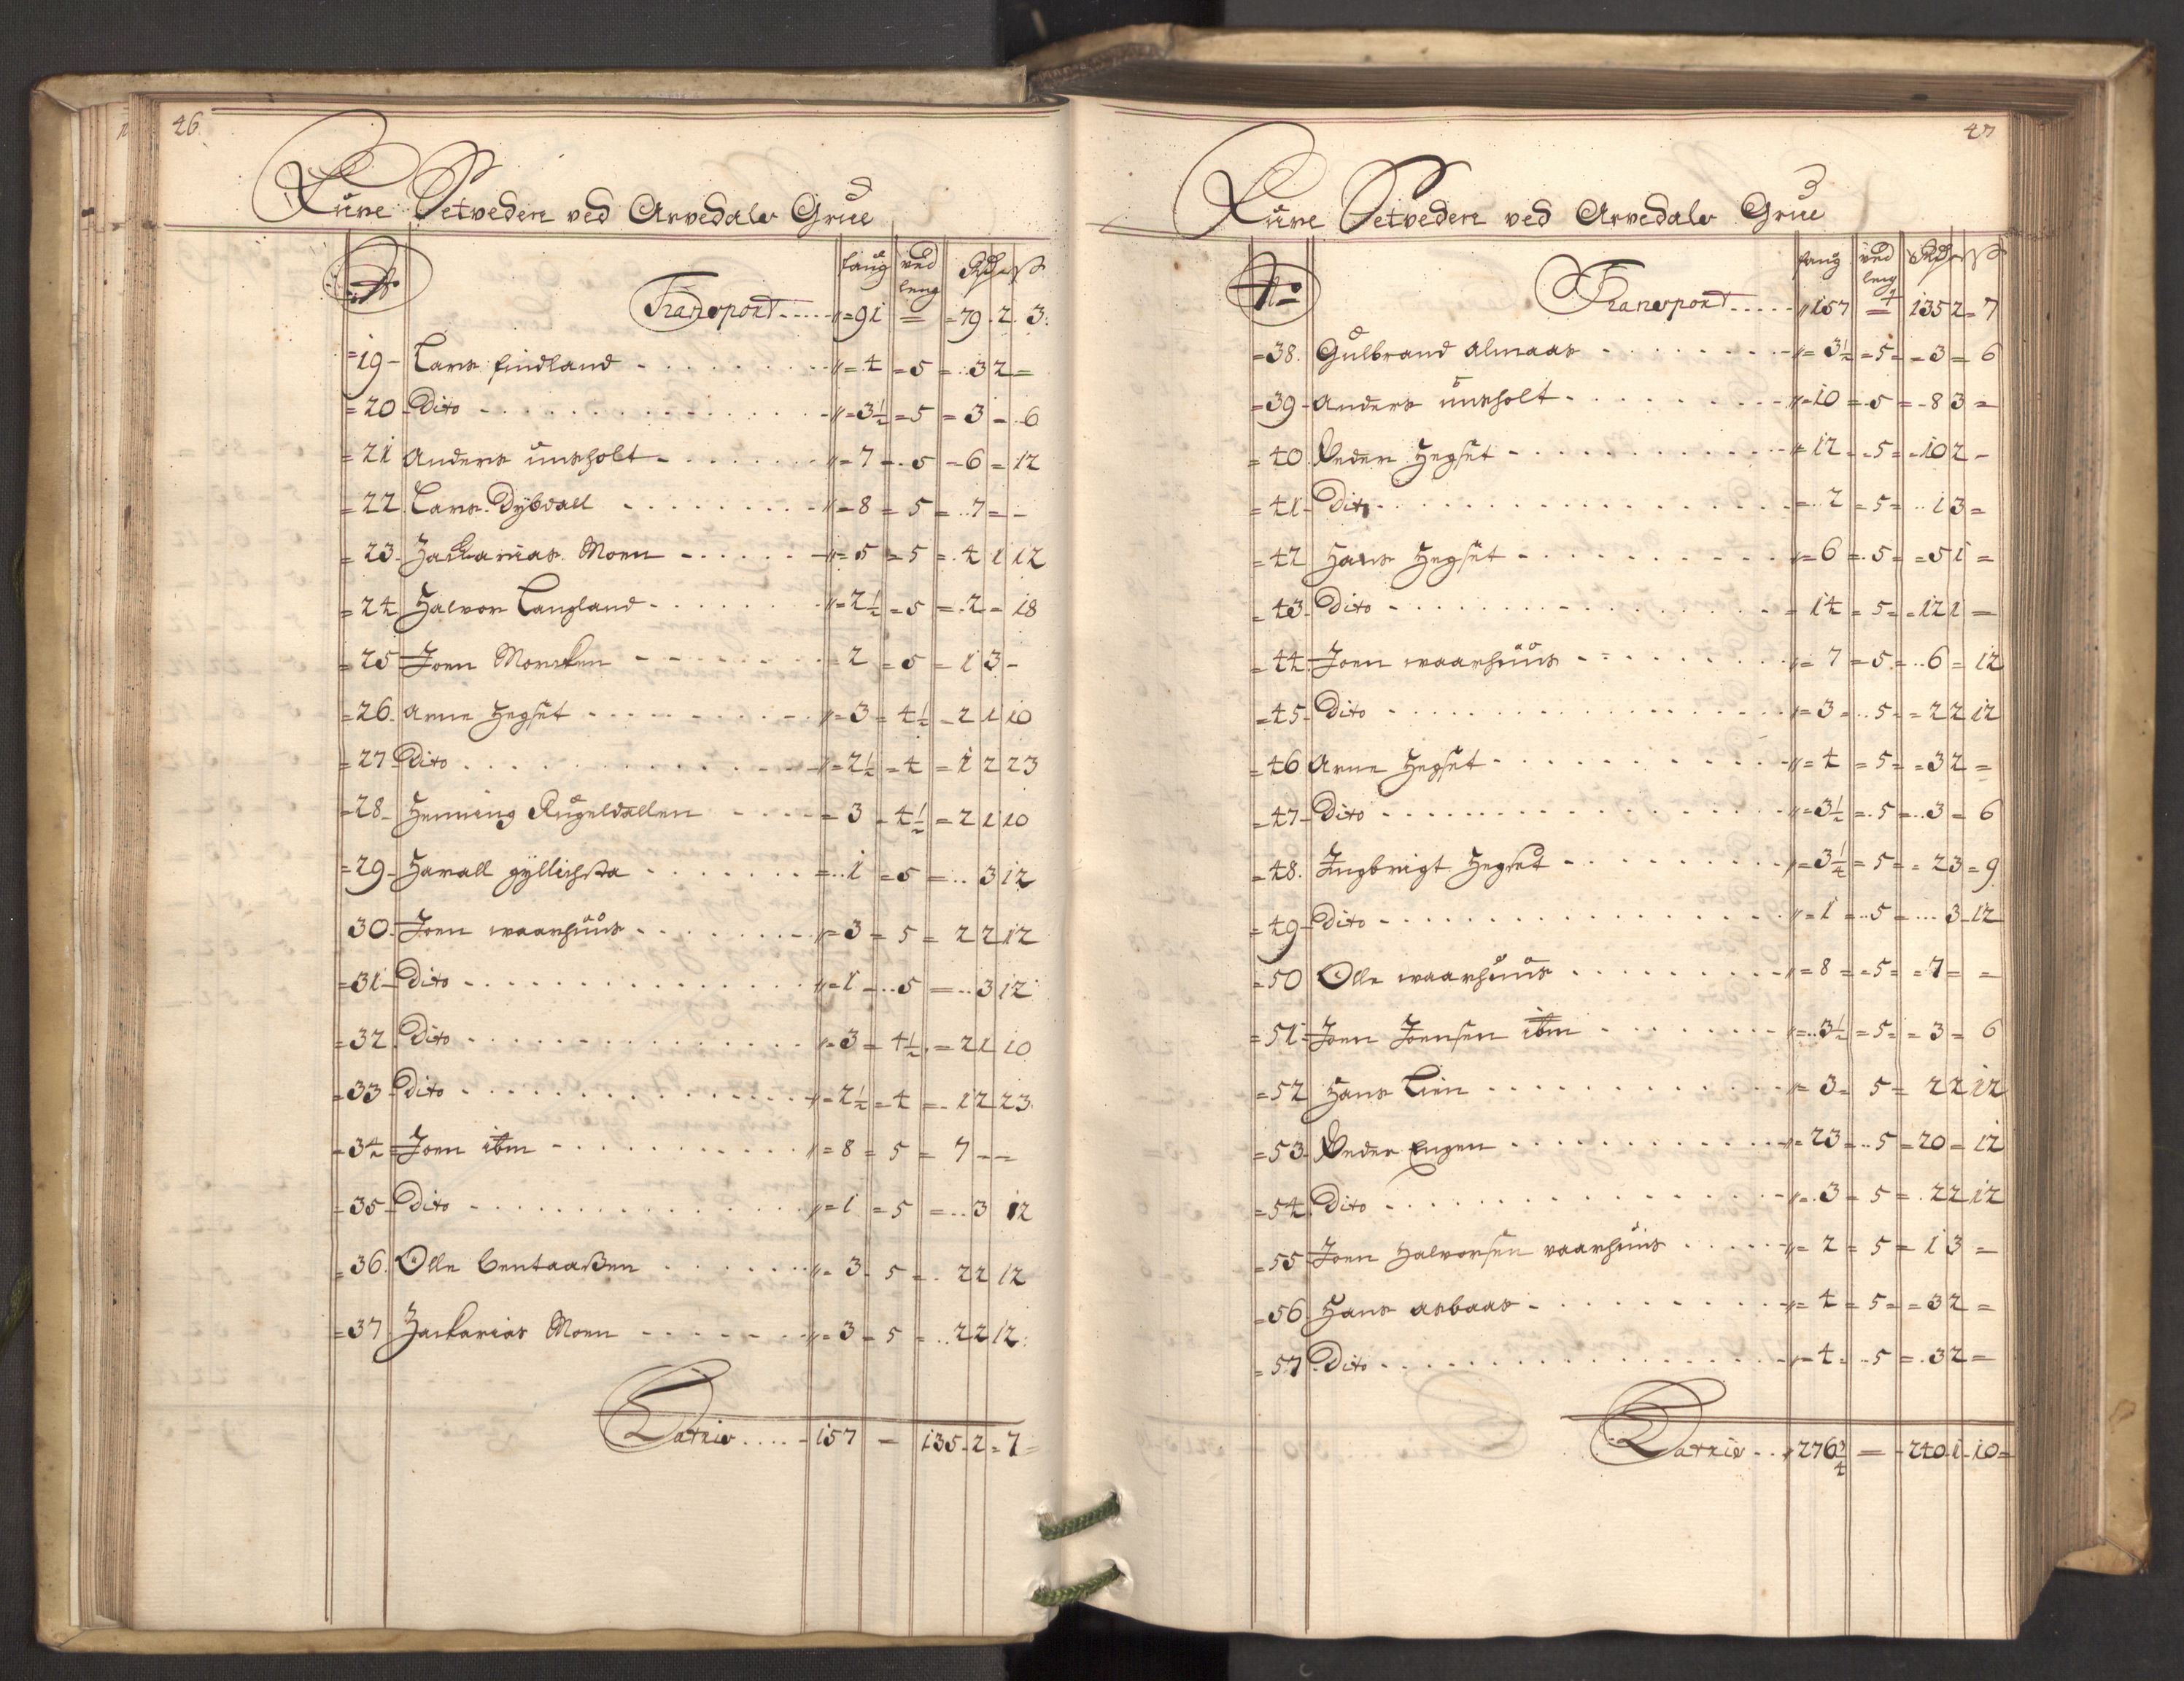 46
Kurve Setveden ved Arvedals Grue
No faug ved leng Rdr ß
Transport 91 = 79 2 3
19 Lars findland 4 5 3 2 =
20 Dito 3½ 5 3 - 6
21 Anders unsholt 7 5 6 = 12
22 Lars Dybdall 8 5 7 = -
23 Zackarias Moen 5 5 4 1 12
24 Halvor Langland 2½ 5 2 - 18
25 Joen Morcken 2 5 1 3 -
26 Arne Hegset 3 4½ 2 1 10
27 Dito 2½ 4 1 2 23
28 Henning Rugeldallen 3 4½ 2 1 10
29 Harall gyllichsta 1 5 3 12
30 Joen waarhuus 3 5 2 2 12
31 Dito 1 5 3 12
32 Dito 3 4½ 2 1 10
33 Dito 2½ 4 1 2 23
34 Joen ibm 8 5 7 - -
35 Dito 1 5 3 12
36 Olle bentaaßen 3 5 2 2 12
37 Zackarias Moen 3 5 2 2 12
Latris 157 - 135 2 7
47
Kurve Setveden ved Arvedals Grue
No faug ved leng Rdr ß
Transport 157 = 135 2 7
38 Gulbrand Almaas 3½ 5 3 = 6
39 Anders unsholt 10 5 8 3 =
40 Peder Hegset 12 5 10 2 -
41 Dito 2 5 1 3 =
42 Hans Hegset 6 5 5 1 =
43 Dito 14 5 12 1 -
44 Joen waarhuus 7 5 6 = 12
45 Dito 3 5 2 2 12
46 Arne Hegset 4 5 3 2 =
47 Dito 3½ 5 3 = 6
48 Ingbrigt Hegset 3¼ 5 2 3 9
49 Dito 1 5 3 12
50 Olle waarhuus 8 5 7 = =
51 Joen Joensen ibm 3½ 5 3 = 6
52 Hans Lien 3 5 2 2 12
53 Peder Engen 23 5 20 = 12
54 Dito 3 5 2 2 12
55 Joen Halvorsen vaarhuus 2 5 1 3 =
56 Hans asbaas 4 5 3 2 =
57 Dito 4 5 3 2 =
Latris 276¾ = 240 1 10